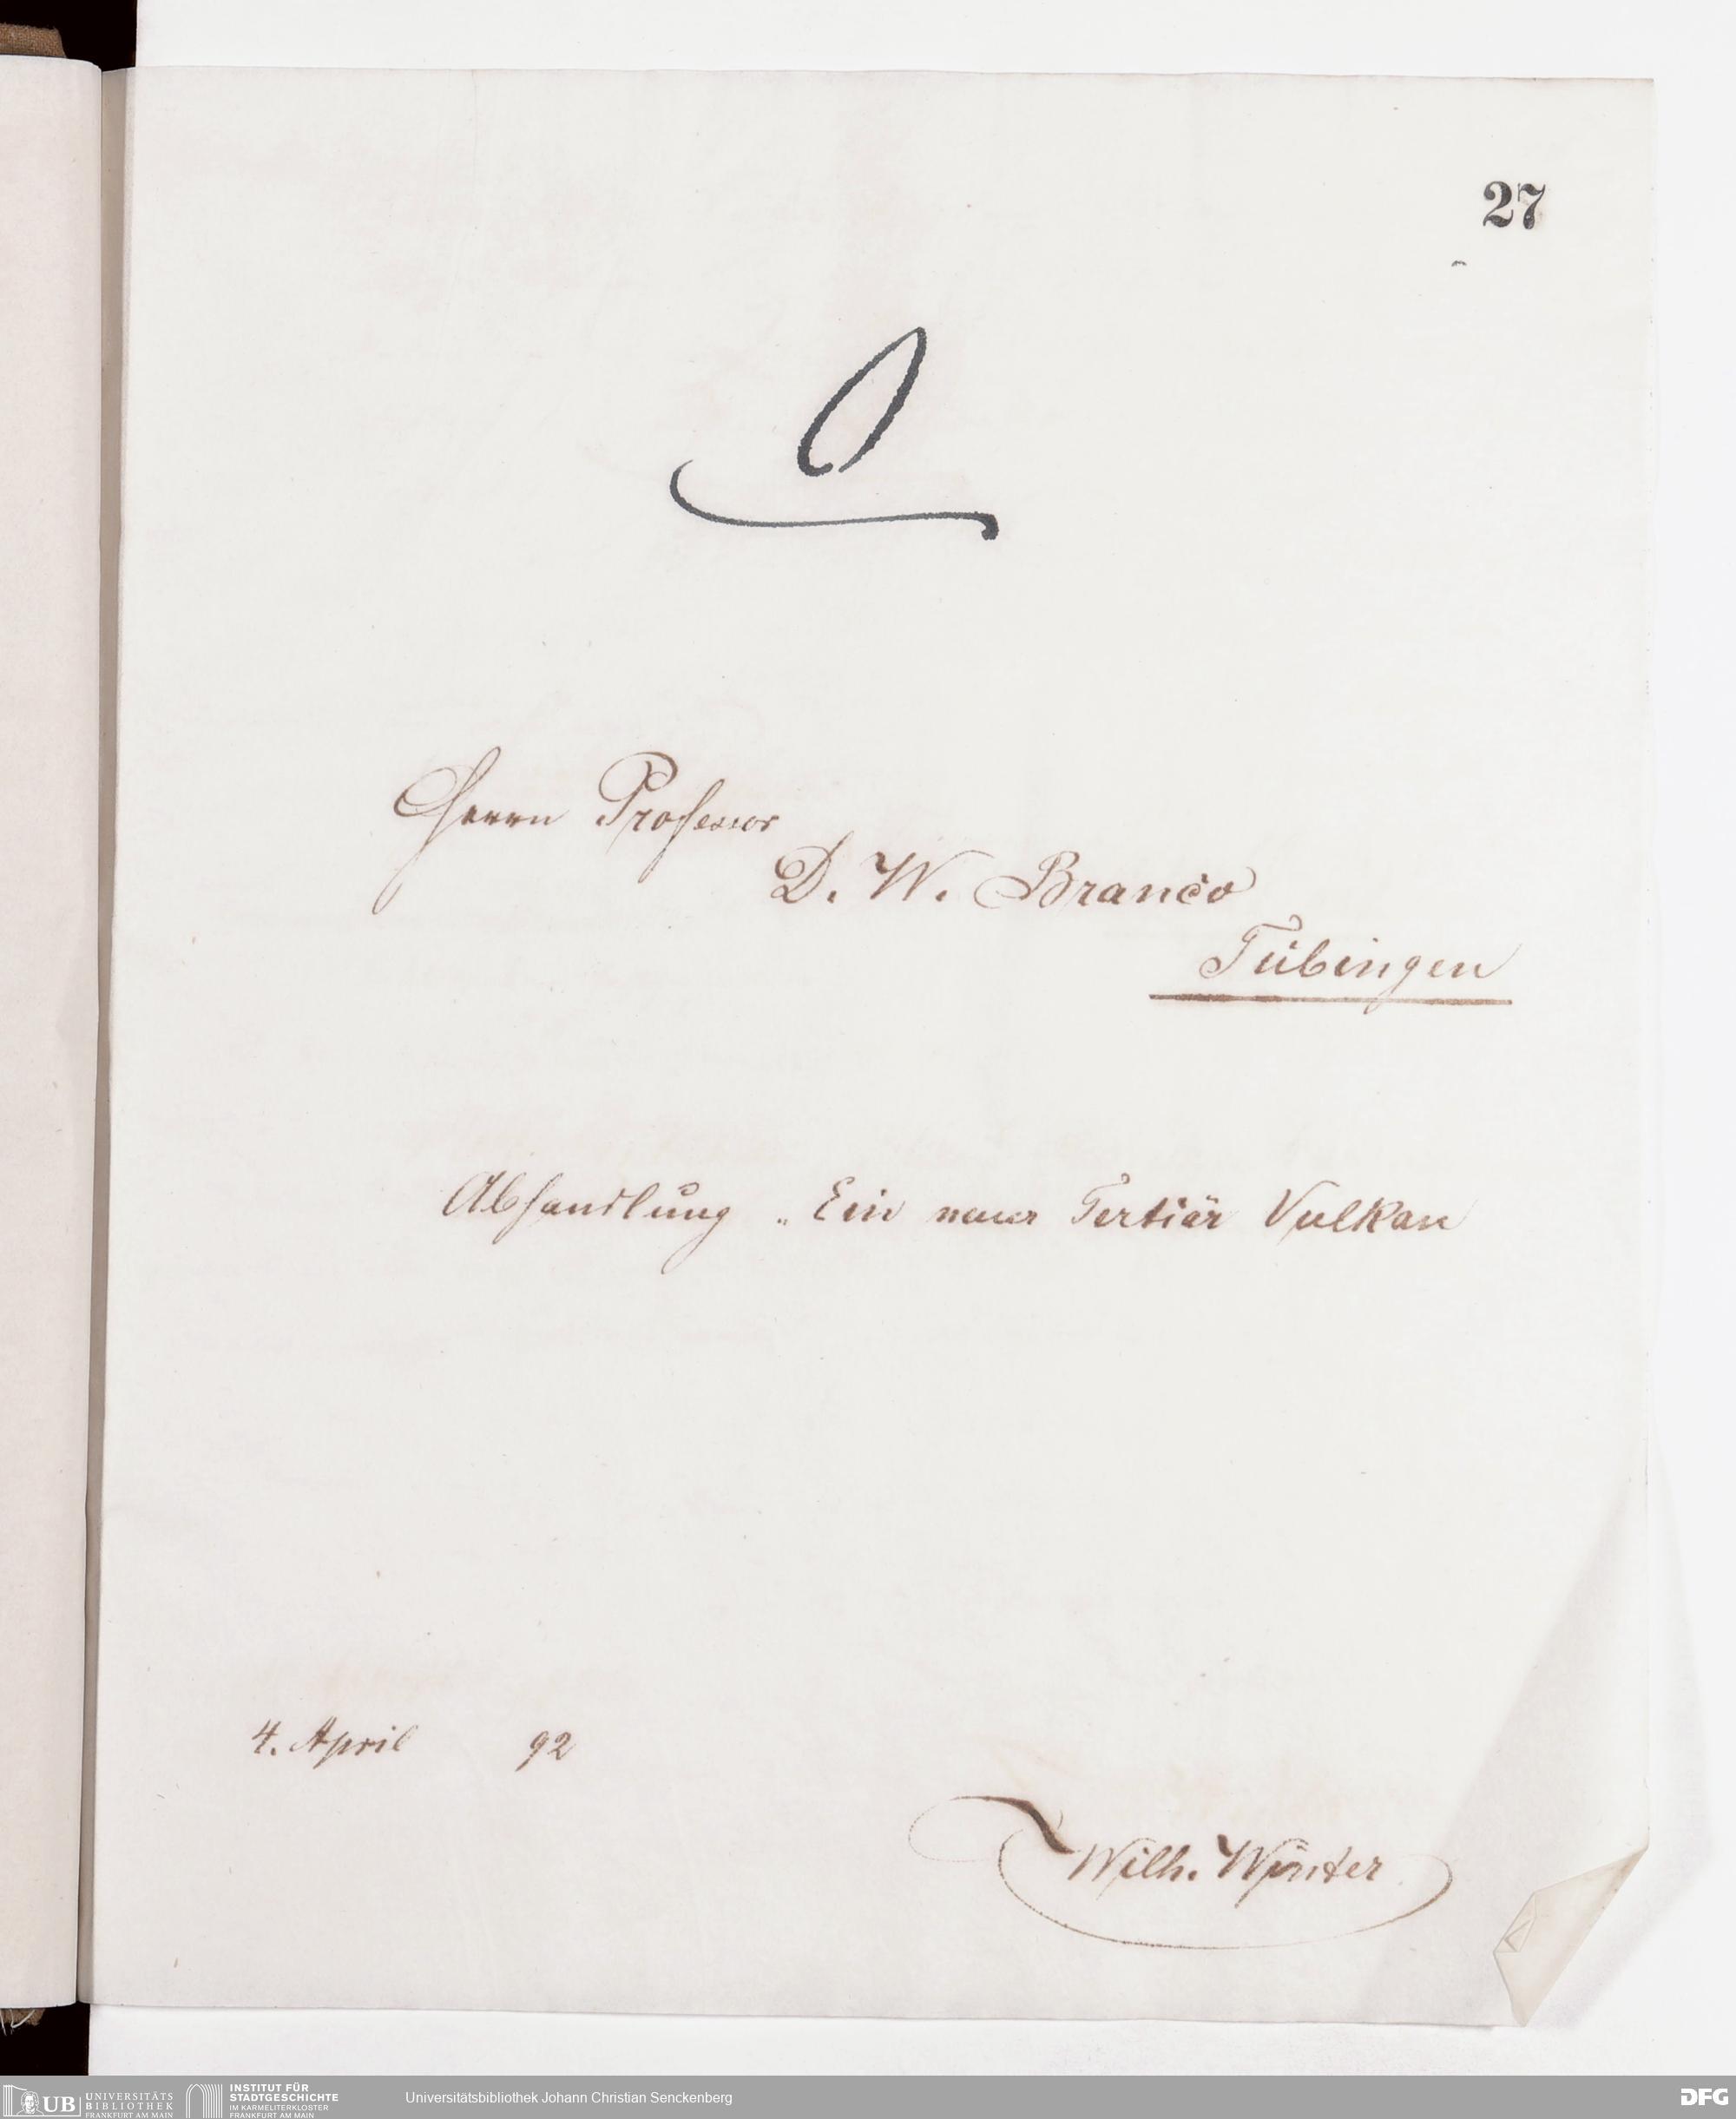 27
Herrn Professor
D. W. Branco
Tübingen
Abhandlung „Ein neuer Tertiär Vulkan
4. April 92
Wilh. Winter
UB UNIVERSITÄTS
BIBLIOTHEK
FRANKFURT AM MAIN
INSTITUT FÜR
STADTGESCHICHTE
IM KARMELITERKLOSTER
FRANKFURT AM MAIN
Universitätsbibliothek Johann Christian Senckenberg
DFG